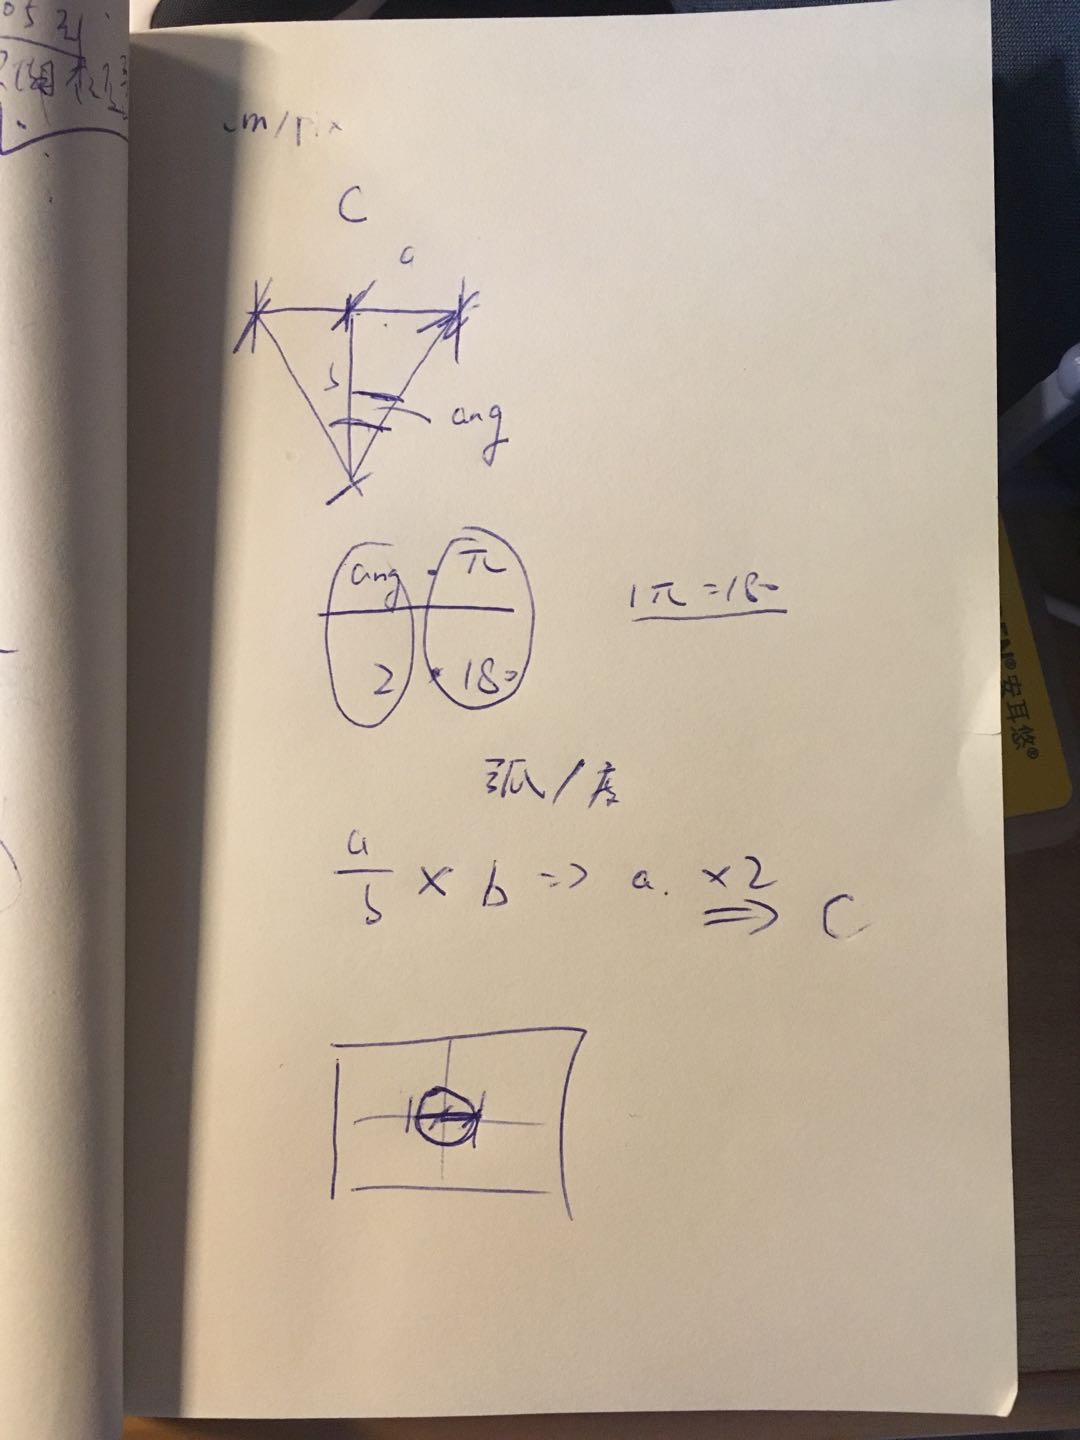 m/pix
C
a
b
ang
ang · π
2 · 180
1π=180
弧/度
a/b × b => a. ×2 => C
安耳悠®